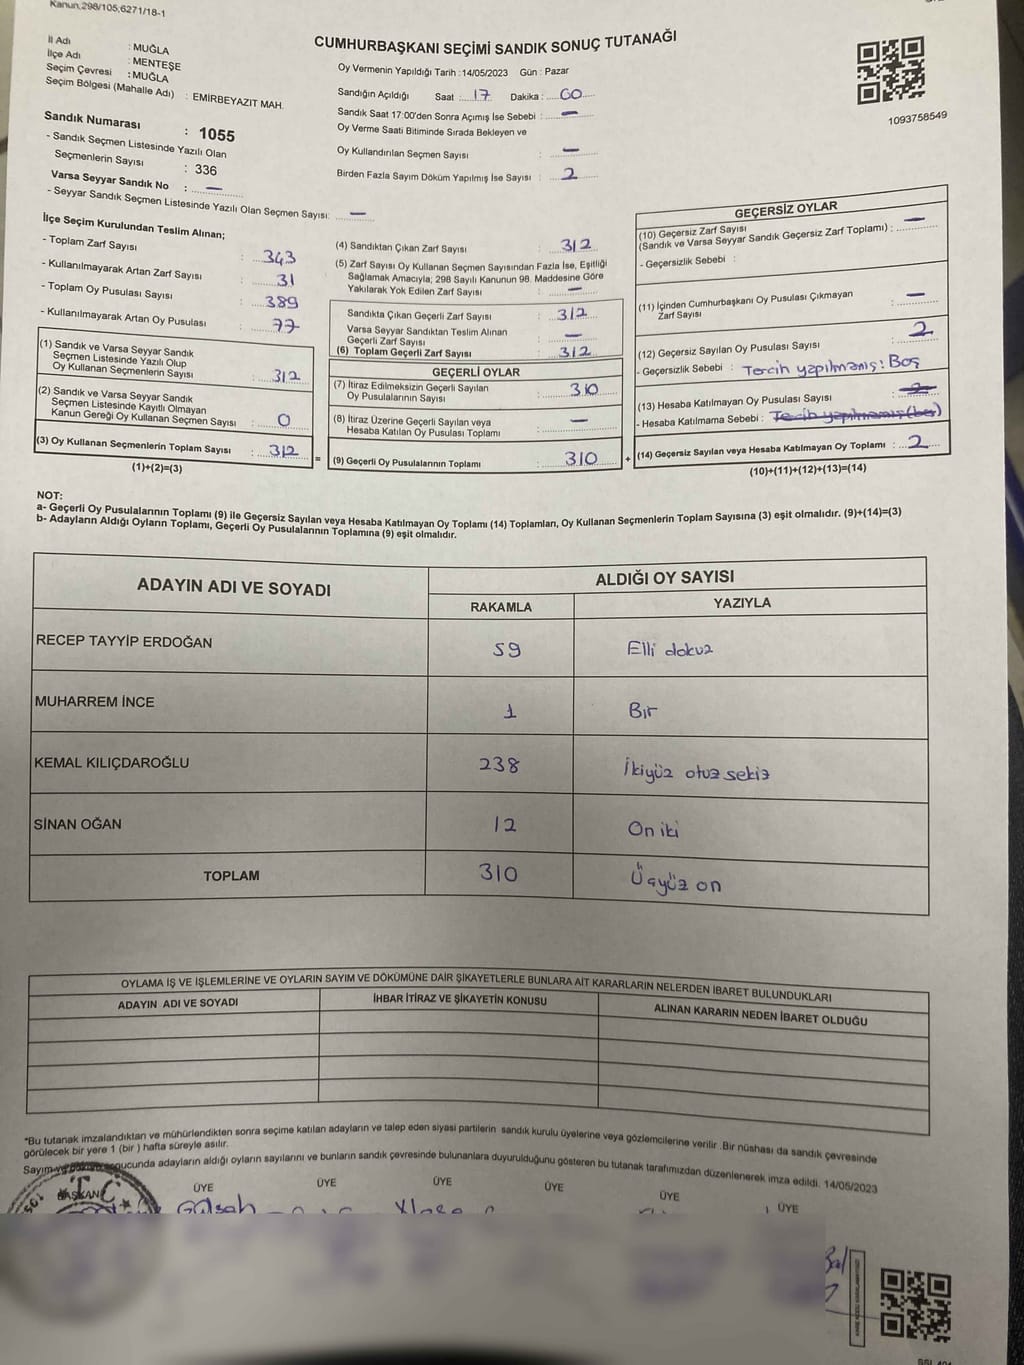 Kanun,298/105,6271/18-1
İl Adı : MUĞLA
İlçe Adı : MENTEŞE
Seçim Çevresi : MUĞLA
Seçim Bölgesi (Mahalle Adı) : EMİRBEYAZIT MAH.
Sandık Numarası : 1055
- Sandık Seçmen Listesinde Yazılı Olan
Seçmenlerin Sayısı : 336
Varsa Seyyar Sandık No : —
- Seyyar Sandık Seçmen Listesinde Yazılı Olan Seçmen Sayısı: —
CUMHURBAŞKANI SEÇİMİ SANDIK SONUÇ TUTANAĞI
Oy Vermenin Yapıldığı Tarih : 14/05/2023 Gün : Pazar
Sandığın Açıldığı Saat : 17 Dakika : 00
Sandık Saat 17:00'den Sonra Açımış İse Sebebi : —
Oy Verme Saati Bitiminde Sırada Bekleyen ve
Oy Kullandırılan Seçmen Sayısı : —
Birden Fazla Sayım Döküm Yapılmış İse Sayısı : 2
1093758549
İlçe Seçim Kurulundan Teslim Alınan;
- Toplam Zarf Sayısı : 343
- Kullanılmayarak Artan Zarf Sayısı : 31
- Toplam Oy Pusulası Sayısı : 389
- Kullanılmayarak Artan Oy Pusulası : 77
(1) Sandık ve Varsa Seyyar Sandık
Seçmen Listesinde Yazılı Olup
Oy Kullanan Seçmenlerin Sayısı : 312
(2) Sandık ve Varsa Seyyar Sandık
Seçmen Listesinde Kayıtlı Olmayan
Kanun Gereği Oy Kullanan Seçmen Sayısı : 0
(3) Oy Kullanan Seçmenlerin Toplam Sayısı : 312
(1)+(2)=(3)
=
(4) Sandıktan Çıkan Zarf Sayısı : 312
(5) Zarf Sayısı Oy Kullanan Seçmen Sayısından Fazla İse, Eşitliği
Sağlamak Amacıyla; 298 Sayılı Kanunun 98. Maddesine Göre
Yakılarak Yok Edilen Zarf Sayısı : —
Sandıkta Çıkan Geçerli Zarf Sayısı : 312
Varsa Seyyar Sandıktan Teslim Alınan
Geçerli Zarf Sayısı : —
(6) Toplam Geçerli Zarf Sayısı : 312
GEÇERLİ OYLAR
(7) İtiraz Edilmeksizin Geçerli Sayılan
Oy Pusulalarının Sayısı : 310
(8) İtiraz Üzerine Geçerli Sayılan veya
Hesaba Katılan Oy Pusulası Toplamı : —
(9) Geçerli Oy Pusulalarının Toplamı : 310
+
GEÇERSİZ OYLAR
(10) Geçersiz Zarf Sayısı
(Sandık ve Varsa Seyyar Sandık Geçersiz Zarf Toplamı) : —
- Geçersizlik Sebebi :
(11) İçinden Cumhurbaşkanı Oy Pusulası Çıkmayan
Zarf Sayısı : —
(12) Geçersiz Sayılan Oy Pusulası Sayısı : 2
- Geçersizlik Sebebi : Tercih yapılmamış! Boş
(13) Hesaba Katılmayan Oy Pusulası Sayısı :
- Hesaba Katılmama Sebebi : Tercih yapılmamış (boş)
(14) Geçersiz Sayılan veya Hesaba Katılmayan Oy Toplamı : 2
(10)+(11)+(12)+(13)=(14)
NOT:
a- Geçerli Oy Pusulalarının Toplamı (9) ile Geçersiz Sayılan veya Hesaba Katılmayan Oy Toplamı (14) Toplamları, Oy Kullanan Seçmenlerin Toplam Sayısına (3) eşit olmalıdır. (9)+(14)=(3)
b- Adayların Aldığı Oyların Toplamı, Geçerli Oy Pusulalarının Toplamına (9) eşit olmalıdır.
ADAYIN ADI VE SOYADI ALDIĞI OY SAYISI
RAKAMLA YAZIYLA
RECEP TAYYİP ERDOĞAN 59 Elli dokuz
MUHARREM İNCE 1 Bir
KEMAL KILIÇDAROĞLU 238 İkiyüz otuz sekiz
SİNAN OĞAN 12 On iki
TOPLAM 310 Üçyüz on
OYLAMA İŞ VE İŞLEMLERİNE VE OYLARIN SAYIM VE DÖKÜMÜNE DAİR ŞİKAYETLERLE BUNLARA AİT KARARLARIN NELERDEN İBARET BULUNDUKLARI
ADAYIN ADI VE SOYADI İHBAR İTİRAZ VE ŞİKAYETİN KONUSU ALINAN KARARIN NEDEN İBARET OLDUĞU
*Bu tutanak imzalandıktan ve mühürlendikten sonra seçime katılan adayların ve talep eden siyasi partilerin sandık kurulu üyelerine veya gözlemcilerine verilir .Bir nüshası da sandık çevresinde
görülecek bir yere 1 (bir ) hafta süreyle asılır.
Sayım ve sonucunda adayların aldığı oyların sayılarını ve bunların sandık çevresinde bulunanlara duyurulduğunu gösteren bu tutanak tarafımızdan düzenlenerek imza edildi. 14/05/2023
BAŞKAN ÜYE ÜYE ÜYE ÜYE ÜYE ÜYE
T.C.
Gülşah